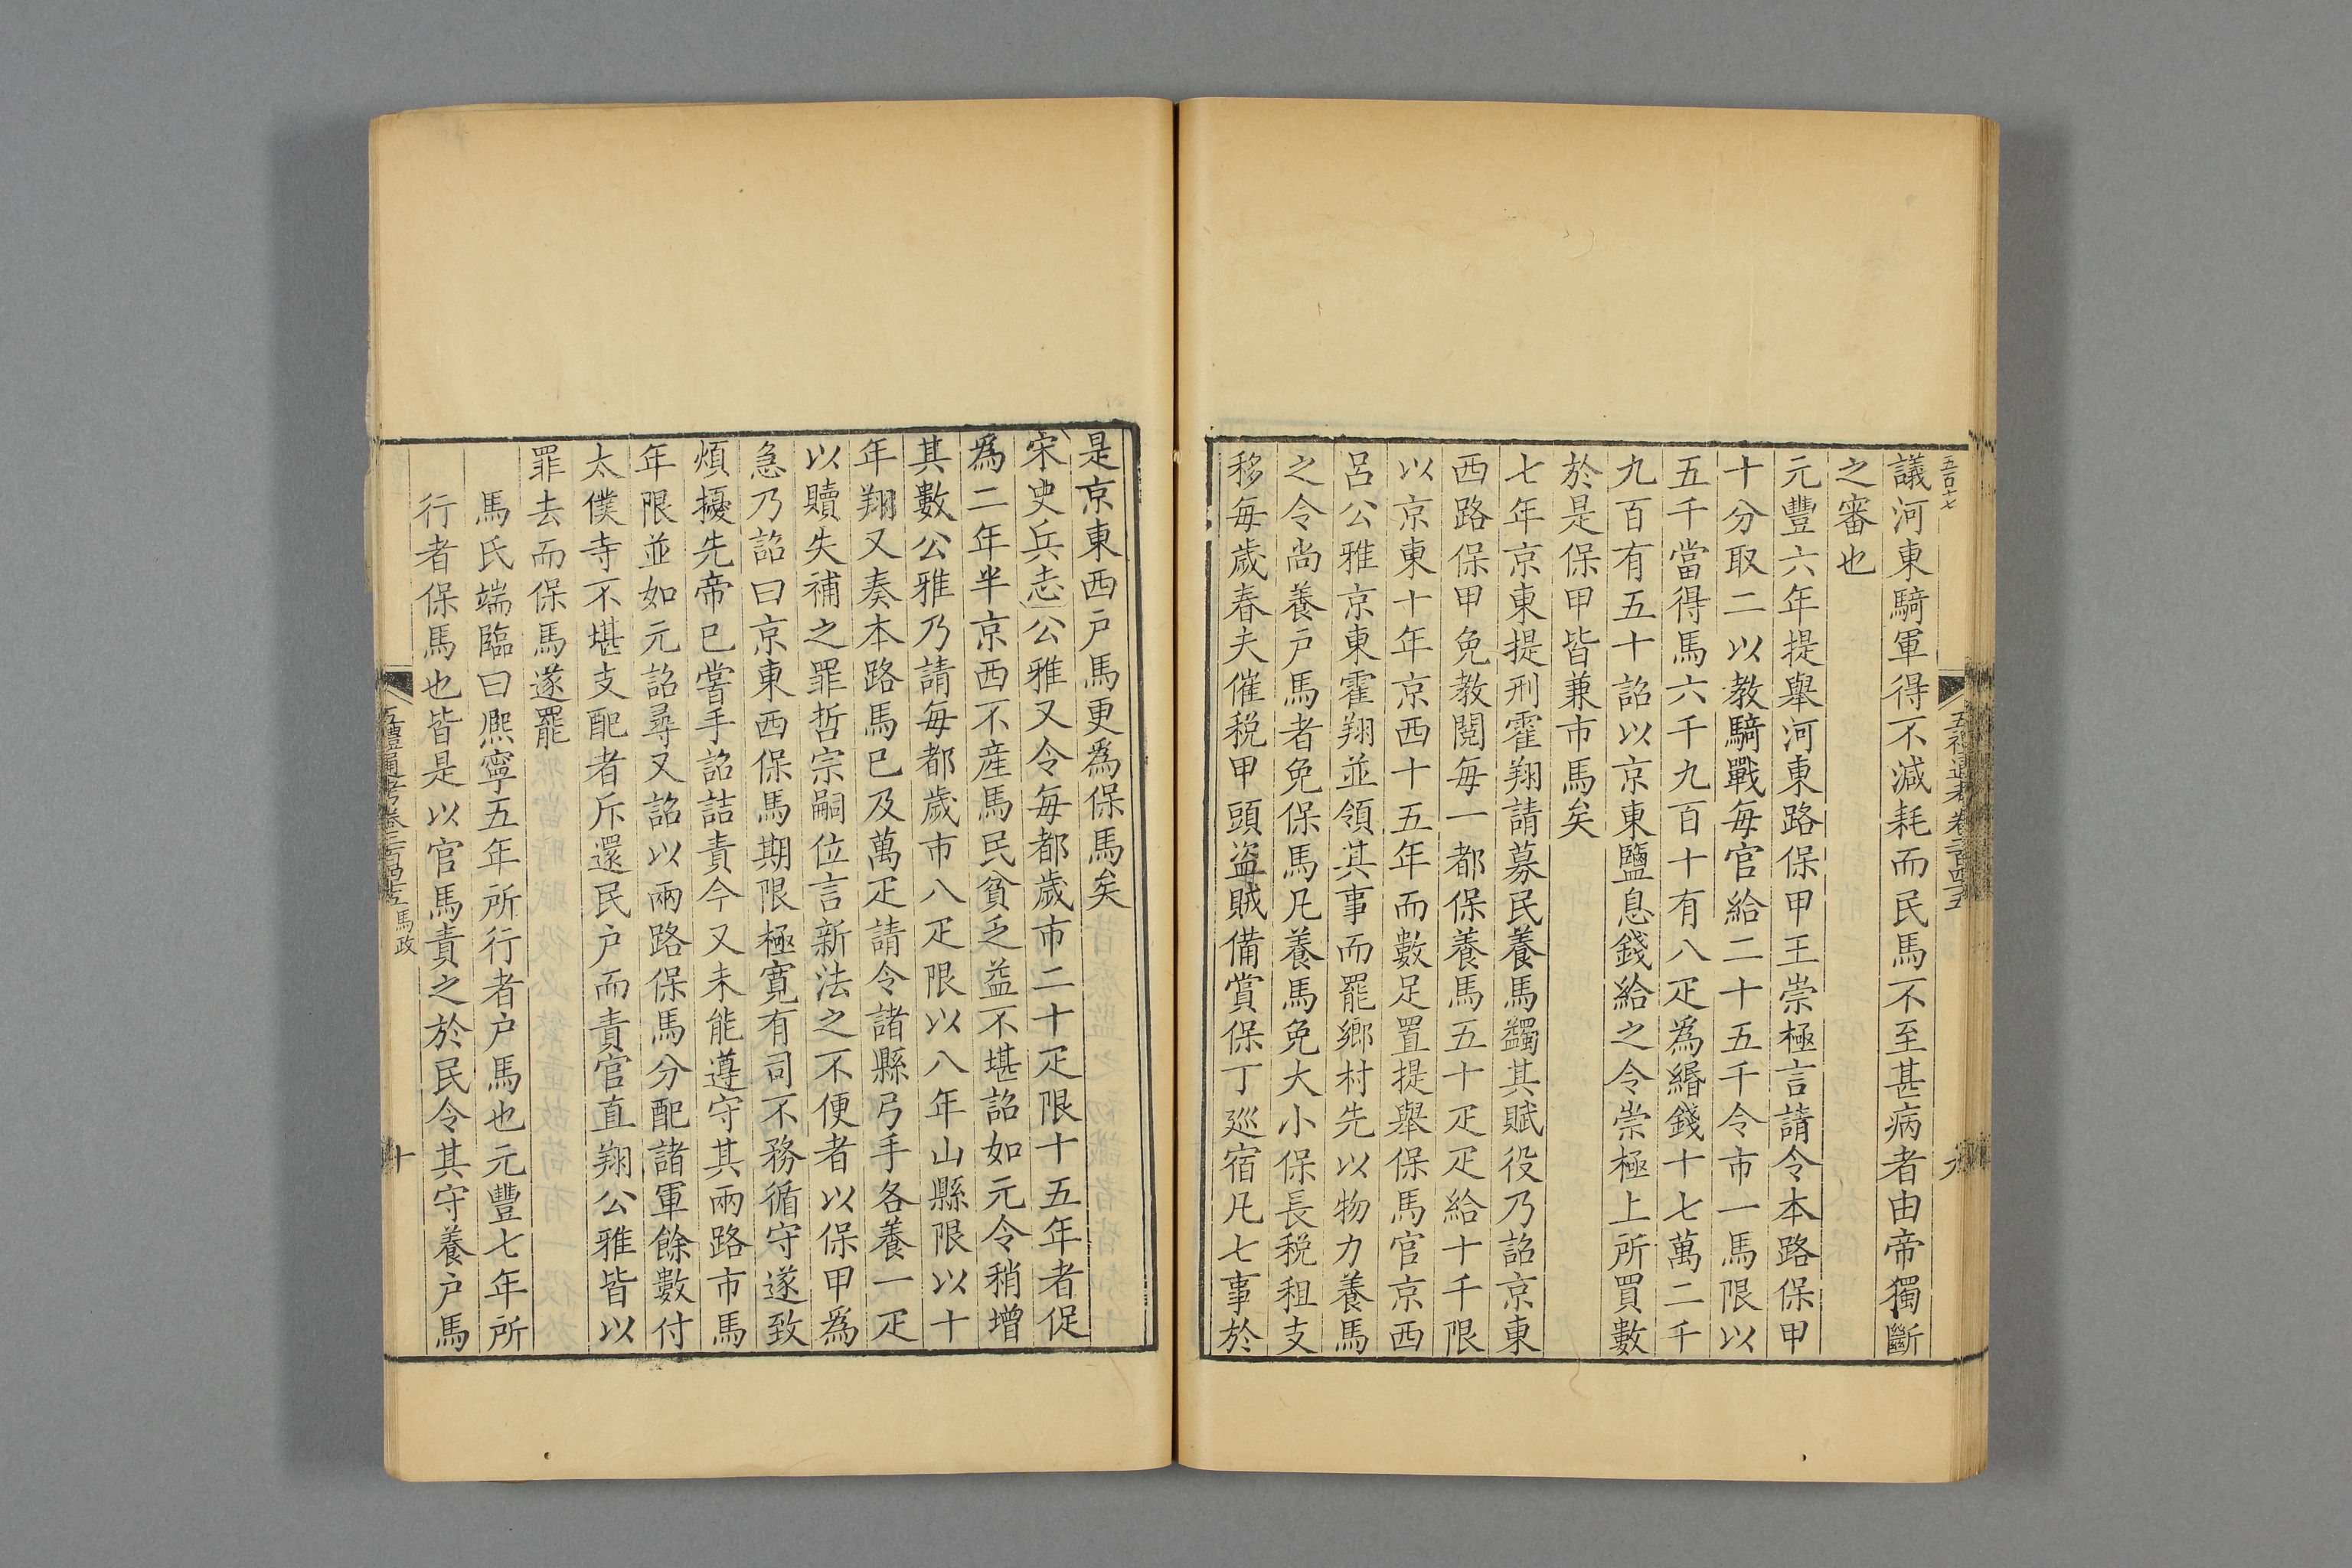 五百十七
議河東騎軍得不減耗而民馬不至甚病者由帝獨斷
之審也
元豐六年提舉河東路保甲王崇極言請令本路保甲
十分取二以教騎戰每官給二十五千令市一馬限以
五千當得馬六千九百十有八疋為緡錢十七萬二千
九百有五十詔以京東鹽息錢給之令崇極上所買數
於是保甲皆兼市馬矣
七年京東提刑霍翔請募民養馬蠲其賦役乃詔京東
西路保甲免教閱每一都保養馬五十疋疋給十千限
以京東十年京西十五年而數足置提舉保馬官京西
呂公雅京東霍翔並領其事而罷鄉村先以物力養馬
之令尚養戶馬者免保馬凡養馬免大小保長稅租支
移每歲春夫催稅甲頭盜賊備賞保丁巡宿凡七事於
是京東西戶馬更為保馬矣
宋史兵志公雅又令每都歲市二十疋限十五年者促
為二年半京西不產馬民貧乏益不堪詔如元令稍增
其數公雅乃請每都歲市八疋限以八年山縣限以十
年翔又奏本路馬已及萬疋請令諸縣弓手各養一疋
以贖失補之罪哲宗嗣位言新法之不便者以保甲為
急乃詔曰京東西保馬期限極寬有司不務循守遂致
煩擾先帝已嘗手詔詰責今又未能遵守其兩路市馬
年限並如元詔尋又詔以兩路保馬分配諸軍餘數付
太僕寺不堪支配者斥還民戶而責官直翔公雅皆以
罪去而保馬遂罷
馬氏端臨曰熈寧五年所行者戶馬也元豐七年所
行者保馬也皆是以官馬責之於民令其守養戶馬
五禮通考卷二百四十五 馬政
十